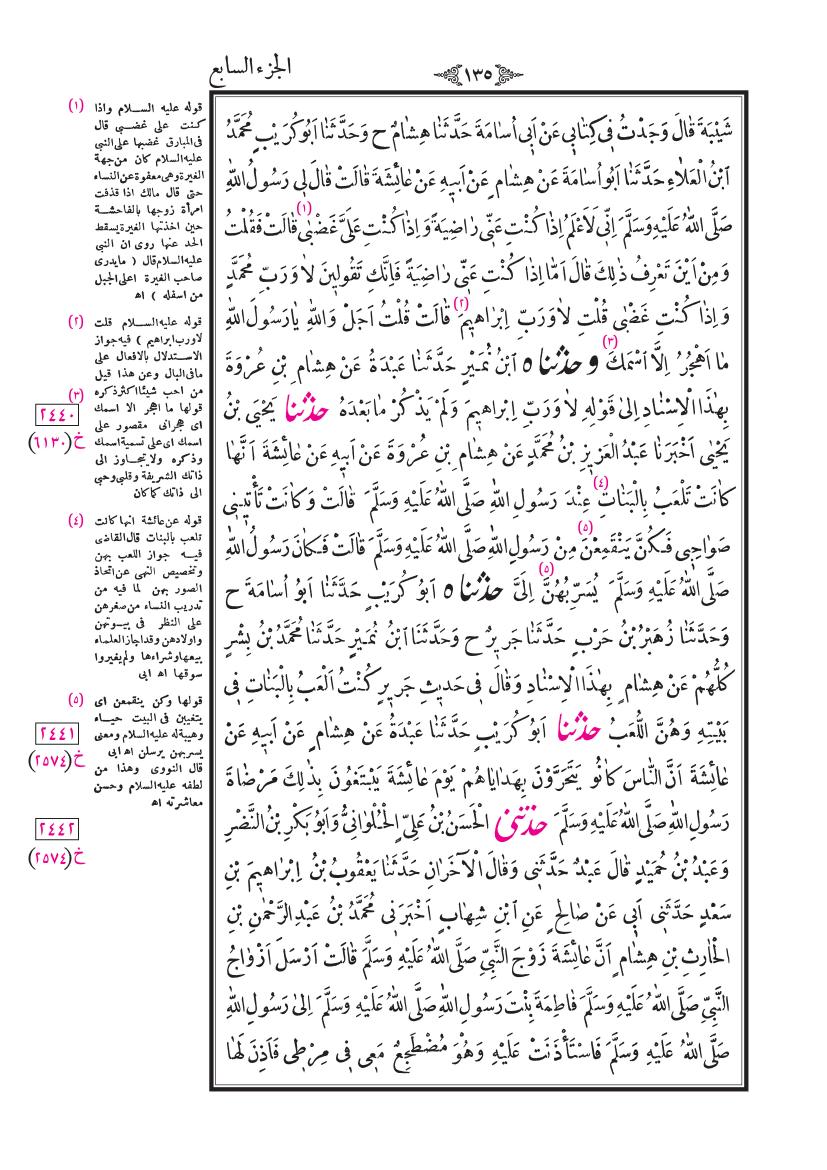 الجزء السابع
١٣٥
شَيْبَةَ قَالَ وَجَدْتُ فِي كِتَابِي عَنْ أَبِي أُسَامَةَ حَدَّثَنَا هِشَامٌ ح وَحَدَّثَنَا أَبُو كُرَيْبٍ مُحَمَّدُ
ابْنُ الْعَلَاءِ حَدَّثَنَا أَبُو أُسَامَةَ عَنْ هِشَامٍ عَنْ أَبِيهِ عَنْ عَائِشَةَ قَالَتْ قَالَ لِي رَسُولُ اللَّهِ
صَلَّى اللَّهُ عَلَيْهِ وَسَلَّمَ إِنِّي لَأَعْلَمُ إِذَا كُنْتِ عَنِّي رَاضِيَةً وَإِذَا كُنْتِ عَلَيَّ غَضْبَى (١) قَالَتْ فَقُلْتُ
وَمِنْ أَيْنَ تَعْرِفُ ذَلِكَ قَالَ أَمَّا إِذَا كُنْتِ عَنِّي رَاضِيَةً فَإِنَّكِ تَقُولِينَ لَا وَرَبِّ مُحَمَّدٍ
وَإِذَا كُنْتِ غَضْبَى قُلْتِ لَا وَرَبِّ إِبْرَاهِيمَ (٢) قَالَتْ قُلْتُ أَجَلْ وَاللَّهِ يَا رَسُولَ اللَّهِ
مَا أَهْجُرُ إِلَّا اسْمَكَ (٣) و حدثنا ٥ ابْنُ نُمَيْرٍ حَدَّثَنَا عَبْدَةُ عَنْ هِشَامِ بْنِ عُرْوَةَ
بِهَذَا الْإِسْنَادِ إِلَى قَوْلِهِ لَا وَرَبِّ إِبْرَاهِيمَ وَلَمْ يَذْكُرْ مَا بَعْدَهُ حدثنا يَحْيَى بْنُ
يَحْيَى أَخْبَرَنَا عَبْدُ الْعَزِيزِ بْنُ مُحَمَّدٍ عَنْ هِشَامِ بْنِ عُرْوَةَ عَنْ أَبِيهِ عَنْ عَائِشَةَ أَنَّهَا
كَانَتْ تَلْعَبُ بِالْبَنَاتِ (٤) عِنْدَ رَسُولِ اللَّهِ صَلَّى اللَّهُ عَلَيْهِ وَسَلَّمَ قَالَتْ وَكَانَتْ تَأْتِينِي
صَوَاحِبِي فَكُنَّ يَنْقَمِعْنَ (٥) مِنْ رَسُولِ اللَّهِ صَلَّى اللَّهُ عَلَيْهِ وَسَلَّمَ قَالَتْ فَكَانَ رَسُولُ اللَّهِ
صَلَّى اللَّهُ عَلَيْهِ وَسَلَّمَ يُسَرِّبُهُنَّ (٥) إِلَيَّ حدثنا ٥ أَبُو كُرَيْبٍ حَدَّثَنَا أَبُو أُسَامَةَ ح
وَحَدَّثَنَا زُهَيْرُ بْنُ حَرْبٍ حَدَّثَنَا جَرِيرٌ ح وَحَدَّثَنَا ابْنُ نُمَيْرٍ حَدَّثَنَا مُحَمَّدُ بْنُ بِشْرٍ
كُلُّهُمْ عَنْ هِشَامٍ بِهَذَا الْإِسْنَادِ وَقَالَ فِي حَدِيثِ جَرِيرٍ كُنْتُ أَلْعَبُ بِالْبَنَاتِ فِي
بَيْتِهِ وَهُنَّ اللُّعَبُ حدثنا أَبُو كُرَيْبٍ حَدَّثَنَا عَبْدَةُ عَنْ هِشَامٍ عَنْ أَبِيهِ عَنْ
عَائِشَةَ أَنَّ النَّاسَ كَانُوا يَتَحَرَّوْنَ بِهَدَايَاهُمْ يَوْمَ عَائِشَةَ يَبْتَغُونَ بِذَلِكَ مَرْضَاةَ
رَسُولِ اللَّهِ صَلَّى اللَّهُ عَلَيْهِ وَسَلَّمَ حدثني الْحَسَنُ بْنُ عَلِيٍّ الْحُلْوَانِيُّ وَأَبُو بَكْرِ بْنُ النَّضْرِ
وَعَبْدُ بْنُ حُمَيْدٍ قَالَ عَبْدٌ حَدَّثَنِي وَقَالَ الْآخَرَانِ حَدَّثَنَا يَعْقُوبُ بْنُ إِبْرَاهِيمَ بْنِ
سَعْدٍ حَدَّثَنِي أَبِي عَنْ صَالِحٍ عَنِ ابْنِ شِهَابٍ أَخْبَرَنِي مُحَمَّدُ بْنُ عَبْدِ الرَّحْمَنِ بْنِ
الْحَارِثِ بْنِ هِشَامٍ أَنَّ عَائِشَةَ زَوْجَ النَّبِيِّ صَلَّى اللَّهُ عَلَيْهِ وَسَلَّمَ قَالَتْ أَرْسَلَ أَزْوَاجُ
النَّبِيِّ صَلَّى اللَّهُ عَلَيْهِ وَسَلَّمَ فَاطِمَةَ بِنْتَ رَسُولِ اللَّهِ صَلَّى اللَّهُ عَلَيْهِ وَسَلَّمَ إِلَى رَسُولِ اللَّهِ
صَلَّى اللَّهُ عَلَيْهِ وَسَلَّمَ فَاسْتَأْذَنَتْ عَلَيْهِ وَهُوَ مُضْطَجِعٌ مَعِي فِي مِرْطِي فَأَذِنَ لَهَا
(١) قوله عليه السلام واذا
كنت على غضبى قال
فى المبارق غضبها على النبى
عليه السلام كان من جهة
الغيرة وهى معفوة عن النساء
حتى قال مالك اذا قذفت
امرأة زوجها بالفاحشة
حين اخذتها الغيرة يسقط
الحد عنها روى ان النبى
عليه السلام قال ( مايدرى
صاحب الغيرة اعلى الجبل
من اسفله ) اه
(٢) قوله عليه السلام قلت
لا ورب ابراهيم ) فيه جواز
الاستدلال بالافعال على
مافى البال وعن هذا قيل
من احب شيئا اكثر ذكره
(٣) قولها ما اهجر الا اسمك
اى هجرانى مقصور على
اسمك اى على تسمية اسمك
وذكره ولا يتجاوز الى
ذاتك الشريفة وقلبى وحبى
الى ذاتك كماكان
(٤) قوله عن عائشة انها كانت
تلعب بالبنات قال القاضى
فيه جواز اللعب بهن
وتخصيص النهى عن اتخاذ
الصور بهن لما فيه من
تدريب النساء من صغرهن
على النظر فى بيوتهن
واولادهن وقد اجاز العلماء
بيعها وشراءها ولم يغيروا
سوقها اه ابى
(٥) قولها وكن ينقمعن اى
يتغيبن فى البيت حياء
وهيبة له عليه السلام ومعنى
يسربهن يرسلن اه ابى
قال النووى وهذا من
لطفه عليه السلام وحسن
معاشرته اه
٢٤٤٠
خ (٦١٣٠)
٢٤٤١
خ (٢٥٧٤)
٢٤٤٢
خ (٢٥٧٤)